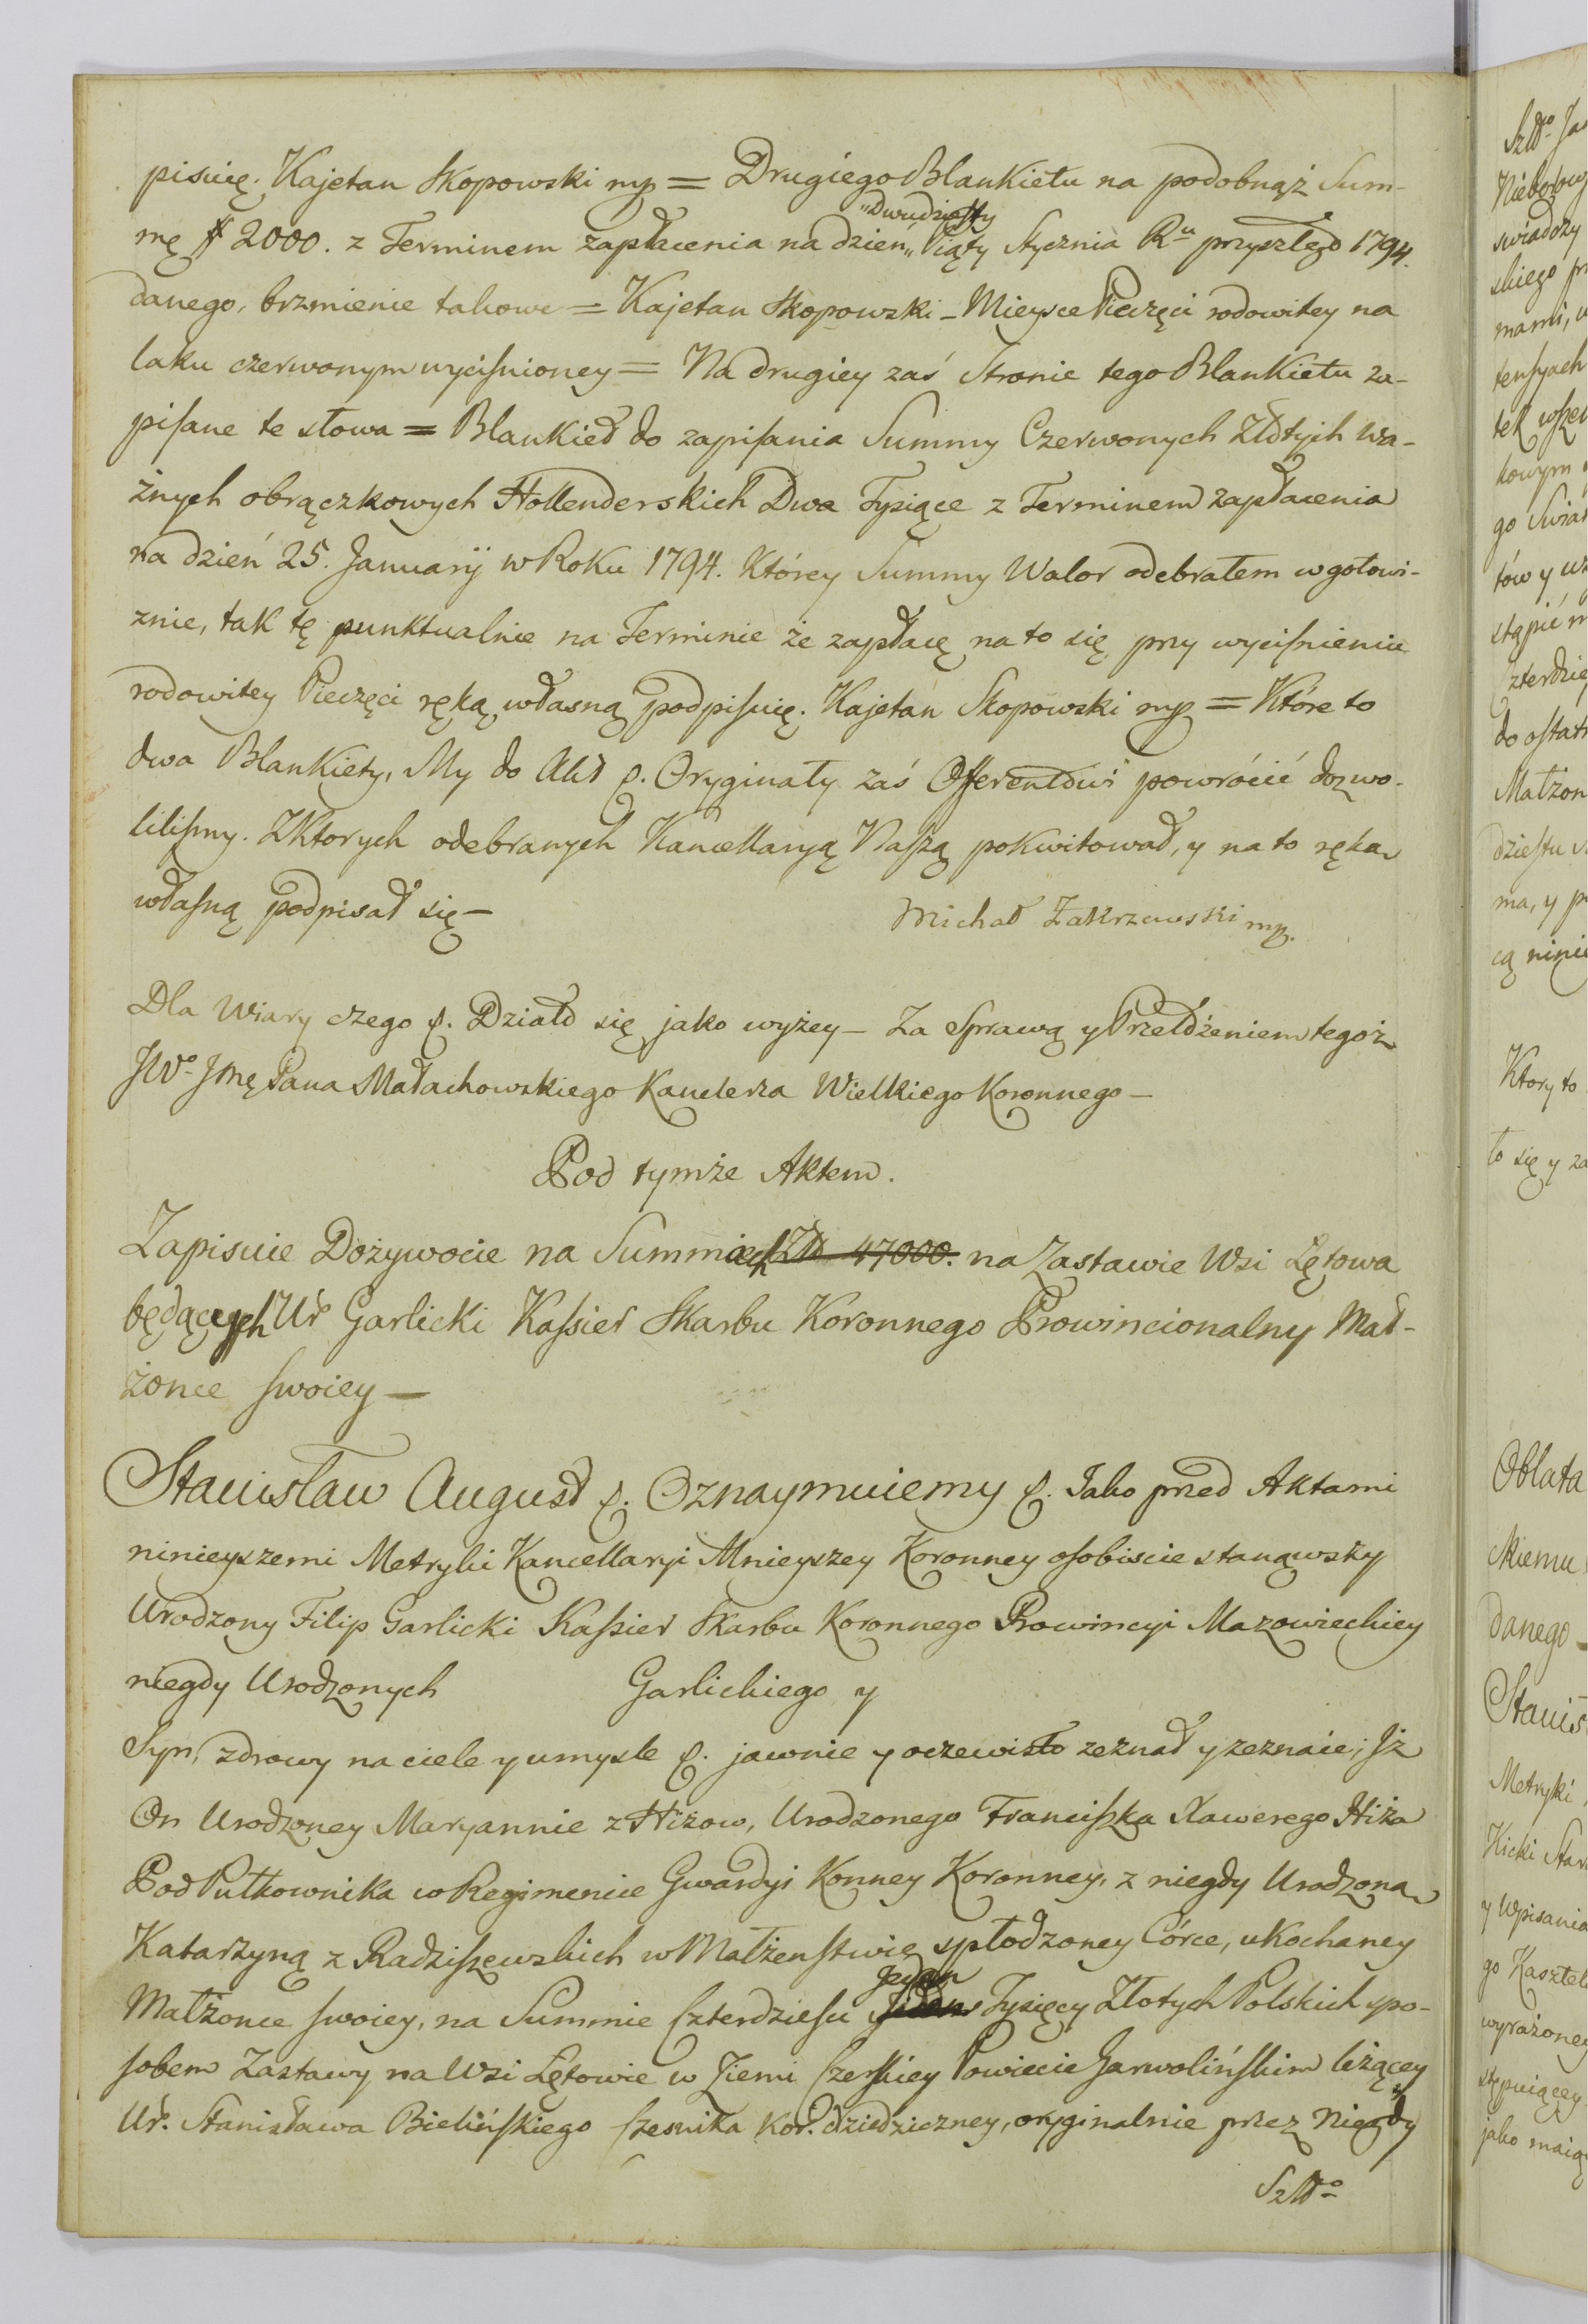 pisuię. Kajetan Skopowski mp = Drugiego Blankietu na podobnąż Sum-
mę # 2000. z Terminem zapłacenia na dzień „Dwudziesty „Piąty Stycznia Ru przyszłego 1794.
danego, brzmienie takowe = Kajetan Skopowski – Mieysce Pieczęci rodowitey na
laku czerwonym wyciśnioney = Na drugiey zaś Stronie tego Blankietu za-
pisane te słowa = Blankiet do zapisania Summy Czerwonych Złotych wa-
żnych obrączkowych Hollenderskich Dwa Tysiące z Terminem zapłacenia
na dzień 25. Januarij w Roku 1794. Którey Summy Walor odebrałem w gotowi-
znie, tak tę punktualnie na Terminie że zapłacę na to się przy wyciśnieniu
rodowitey Pieczęci ręką własną podpisuię. Kajetan Skopowski mp = Które to
dwa Blankiety, My do Akt &. Oryginały zaś Offerentowi powrócić dozwo-
lilismy. Z Ktorych odebranych Kancellaryą Naszą pokwitował, y na to ręką
własną podpisał się –
Michał Zakrzewski mp.
Dla Wiary czego &. Działo się jako wyżey – Za Sprawą y Przełożeniem tegoż
JWo Jmę Pana Małachowskiego Kanclerza Wielkiego Koronnego –
Pod tymże Aktem.
Zapisuie Dożywocie na Summach Zł 47000. na Zastawie Wsi Lętowa
będących Ur. Garlicki Kassier Skarbu Koronnego Prowincionalny Mał-
żonce swoiey –
Stanisław August &. Oznaymuiemy &. Jako przed Aktami
ninieyszemi Metryki Kancellaryi Mnieyszey Koronney osobiscie stanąwszy
Urodzony Filip Garlicki Kassier Skarbu Koronnego Prowincyi Mazowieckiey
niegdy Urodzonych Garlickiego y
Syn, zdrowy na ciele y umysle &. jawnie y oczewisto zeznał y zeznaie; Jż
On Urodzoney Maryannie z Hiżow, Urodzonego Franciszka Xawerego Hiża
Pod Pułkownika w Regimencie Gwardyi Konney Koronney, z niegdy Urodzoną
Katarzyną z Radziszewskich w Małżenstwie spłodzoney Córce, ukochaney
Małżonce swoiey, na Summie Czterdziestu Jeden Tysięcy Złotych Polskich spo-
sobem Zastawy na Wsi Lętowie w Ziemi Czerskiey Powiecie Garwolińskim leżącey
Ur. Stanisława Bielińskiego Czesnika Kor. dziedziczney, oryginalnie przez niegdy
Szlo
Szlo Ja
swiadczy
skiego pr
mami, w
tensyach
kowym
go Swia
tów y w
stąpić
Czterdzie
do ostat
Małżon
dziestu
ma, y p
cą ninie
Ktory to
to się y za
Oblata
ckiemu
danego –
Stanis
Metryki
Kicki Star
y Wpisania
go Kasztel
wyrażoney
stępuiącey
jako maią